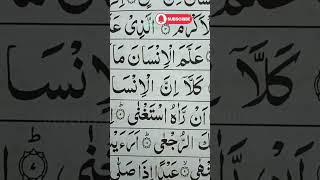 SUBSCRIBE
الْاَكْرَمُ ۙ الَّذِىْ
عَلَّمَ الْاِنْسَانَ مَا
كَلَّاۤ اِنَّ الْاِنْسَا
اَنْ رَّاٰهُ اسْتَغْنٰى ؕ
كَ الرُّجْعٰى ؕ اَرَءَيْ
عَبْدًا اِذَا صَلّٰى ؕ